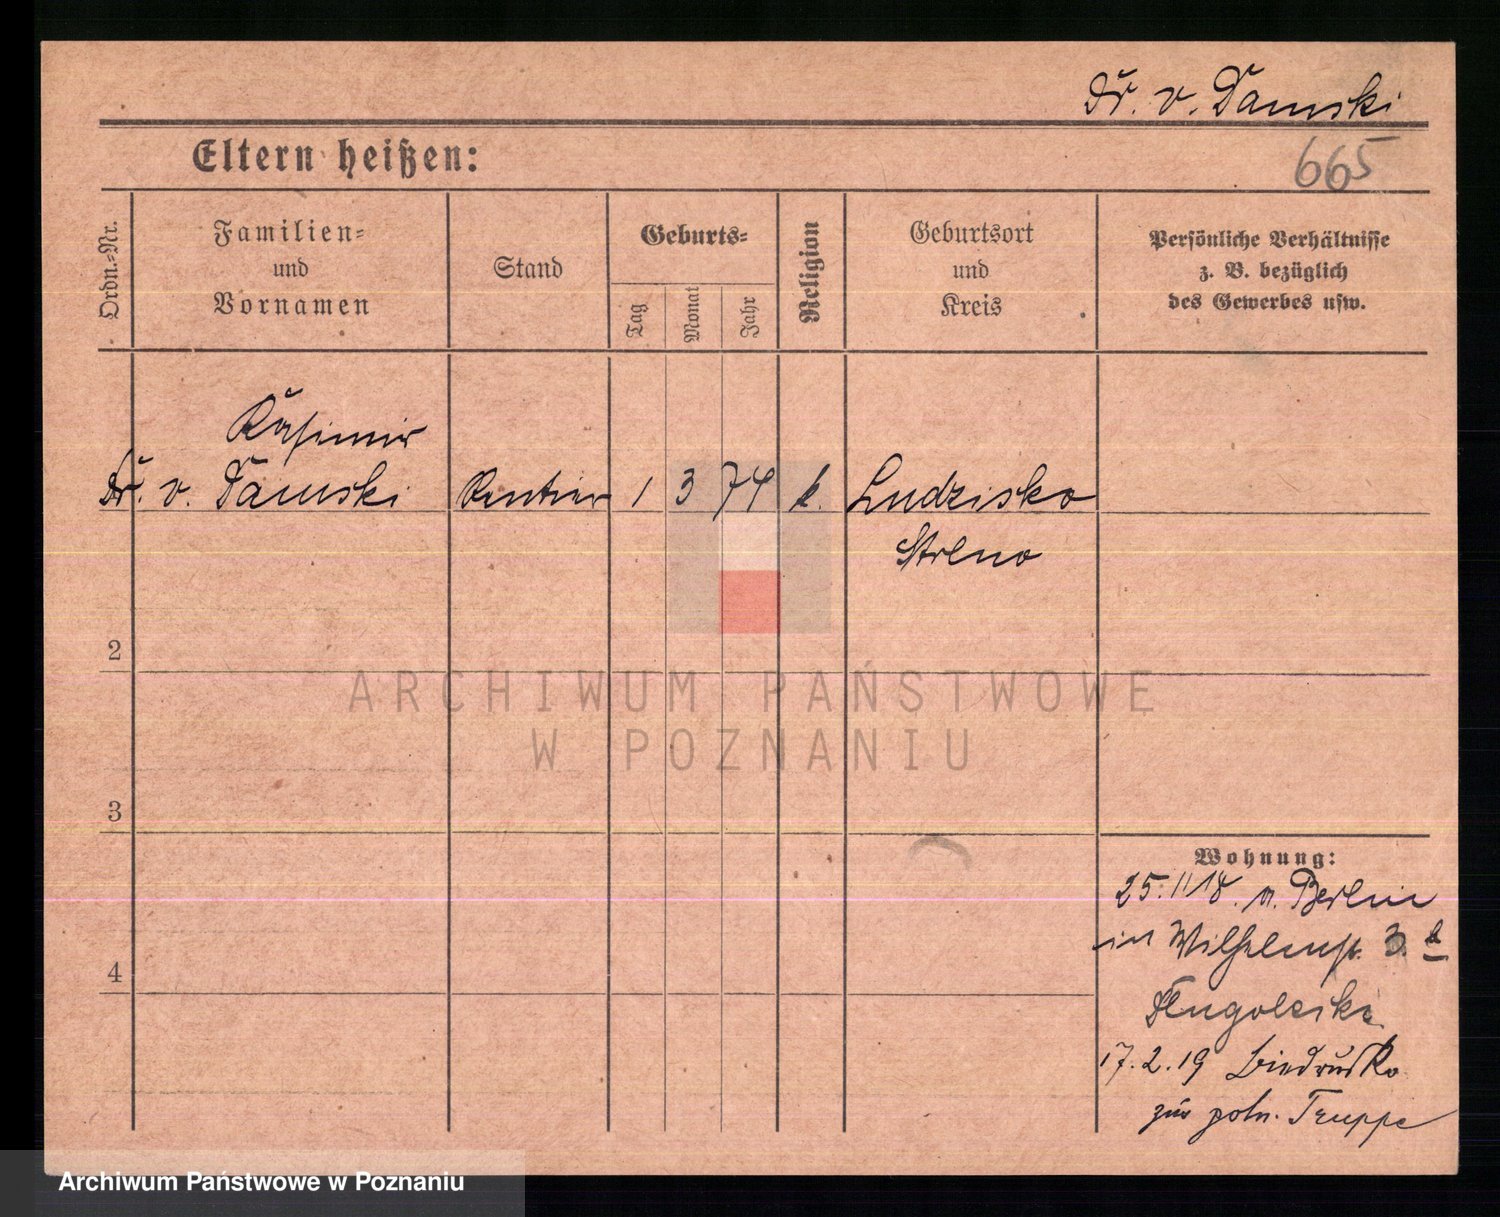 Dr. v. Tamski
Eltern heißen:
665
Ordn.-Nr.
Familien-
und
Vornamen
Stand
Geburts-
Tag
Monat
Jahr
Religion
Geburtsort
und
Kreis
Persönliche Verhältnisse
z. B. bezüglich
des Gewerbes usw.
Kasimir
Dr. v. Tamski
Rentier
1
3
74
k.
Ludzisko
Strelno
2
3
4
ARCHIWUM PAŃSTWOWE
W POZNANIU
Wohnung:
25. 11 18. n. Berlin
in Wilhelmstr. 3.
17. 2. 19 Biedrusko
zur poln. Truppe
Archiwum Państwowe w Poznaniu